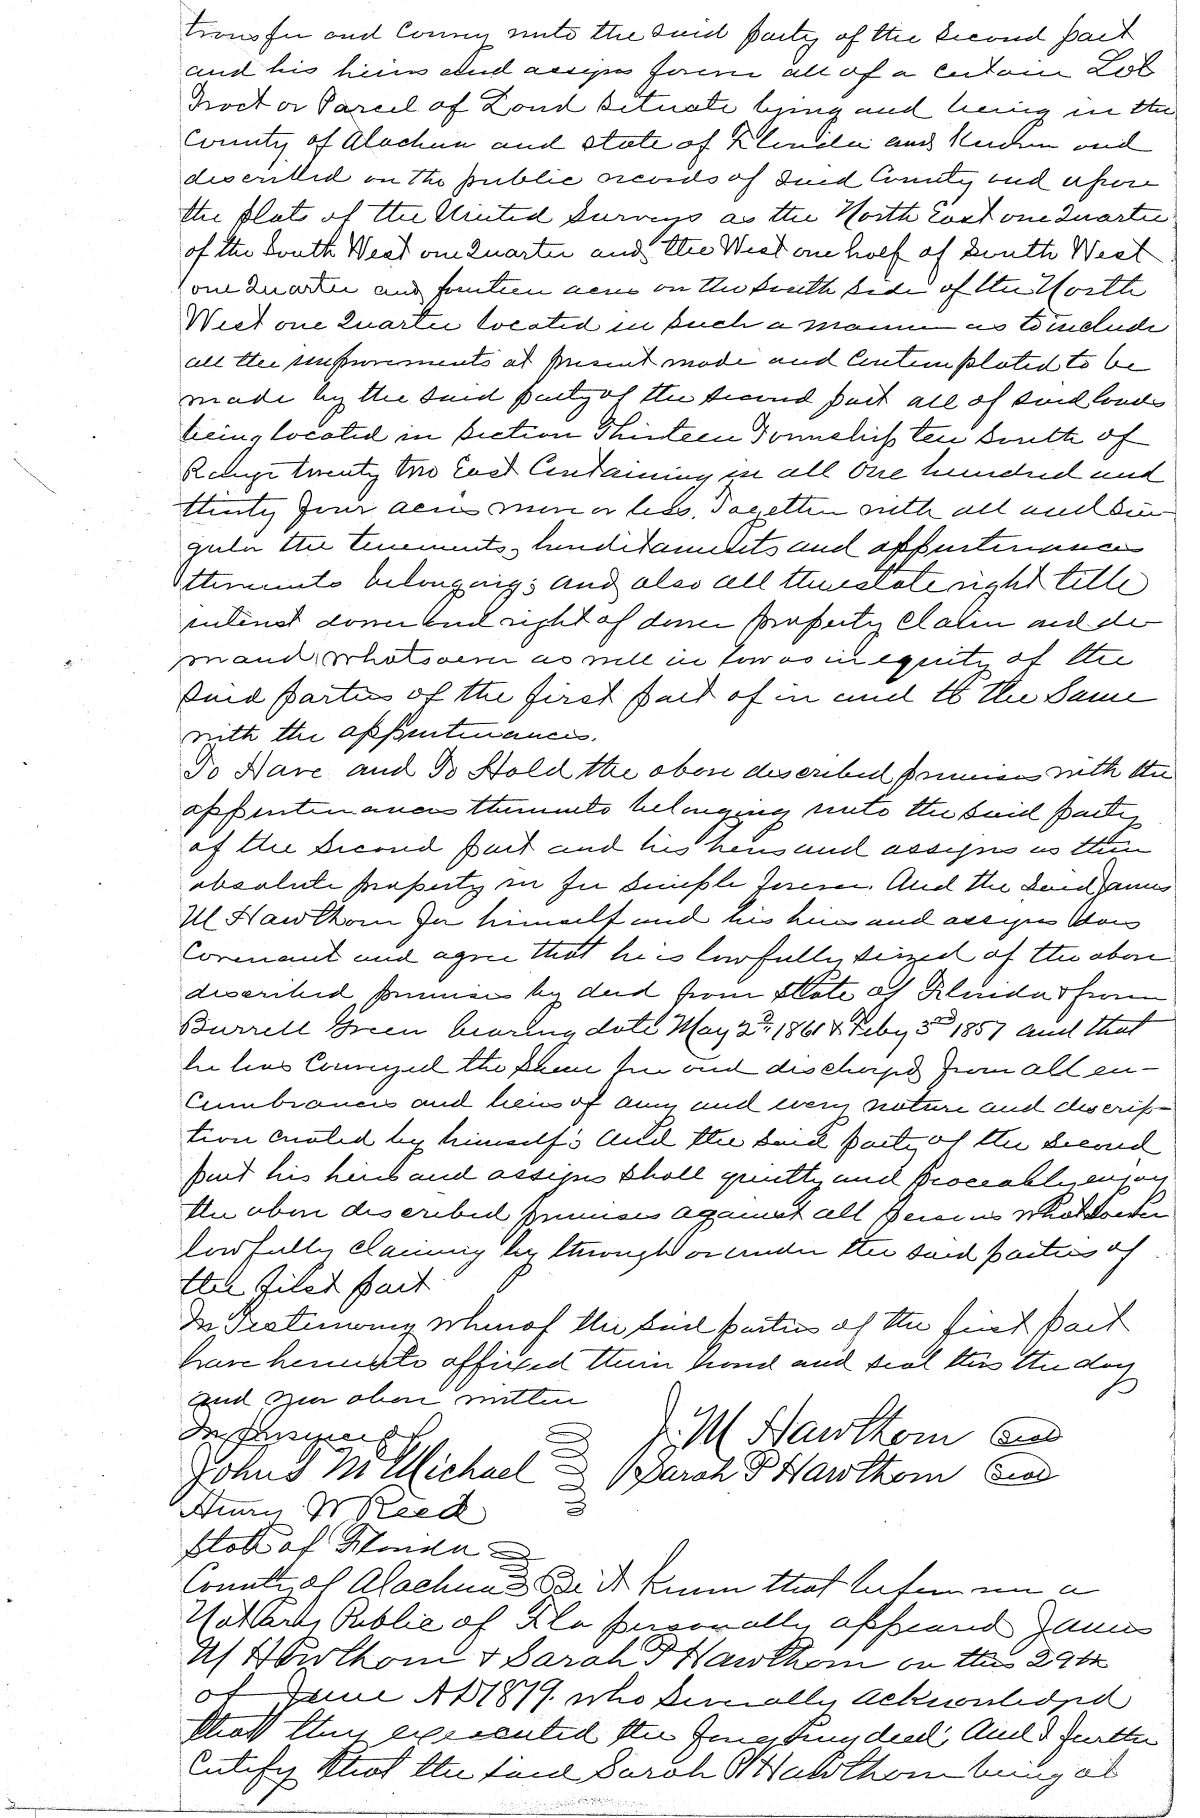 transfer and convey unto the said party of the second part
and his heirs and assigns forever all of a certain Lot
Tract or Parcel of Land situate lying and being in the
County of Alachua and state of Florida and known and
described on the public records of said County and upon
the plats of the United Surveys as the North East one Quarter
of the South West one Quarter and the West one half of South West
one Quarter and fourteen acres on the South side of the North
West one Quarter located in such a manner as to include
all the improvements at present made and contemplated to be
made by the said party of the second part all of said lands
being located in Section Thirteen Township ten South of
Range twenty two East Containing in all One hundred and
thirty four acres more or less. Together with all and sin-
gular the tenements, hereditaments and appurtenances
thereunto belonging; and also all the estate right title
interest dower and right of dower property claim and de-
mand whatsoever as well in law as in equity of the
said parties of the first part of in and to the Same
with the appurtenances.
To Have and To Hold the above described premises with the
appurtenances thereunto belonging unto the said party
of the second part and his heirs and assigns as their
absolute property in fee simple forever. And the said James
M Hawthorn for himself and his heirs and assigns does
Covenant and agree that he is lawfully siezed of the above
described premises by deed from State of Florida & from
Burrell Green bearing date May 2d, 1861 & Feby 3rd 1857 and that
he has Conveyed the same free and discharged from all en-
cumbrances and liens of any and every nature and descrip-
tion created by himself; And the said party of the second
part his heirs and assigns shall quietly and peaceably enjoy
the above described premises against all persons whatsoever
lawfully claiming by through or under the said parties of
the first part
In Testimony whereof the said parties of the first part
have hereunto affixed their hand and seal this the day
and year above written
In presence of J. M Hawthorn Seal
John S McMichael Sarah P Hawthorn Seal
Henry W Reed
State of Florida
County of Alachua Be it known that before me a
Notary Public of Fla personally appeared James
M Hawthorn & Sarah P Hawthorn on this 29th
of June AD 1879. who severally acknowledged
that they executed the foregoing deed; And I further
Certify that the said Sarah P Hawthorn being at